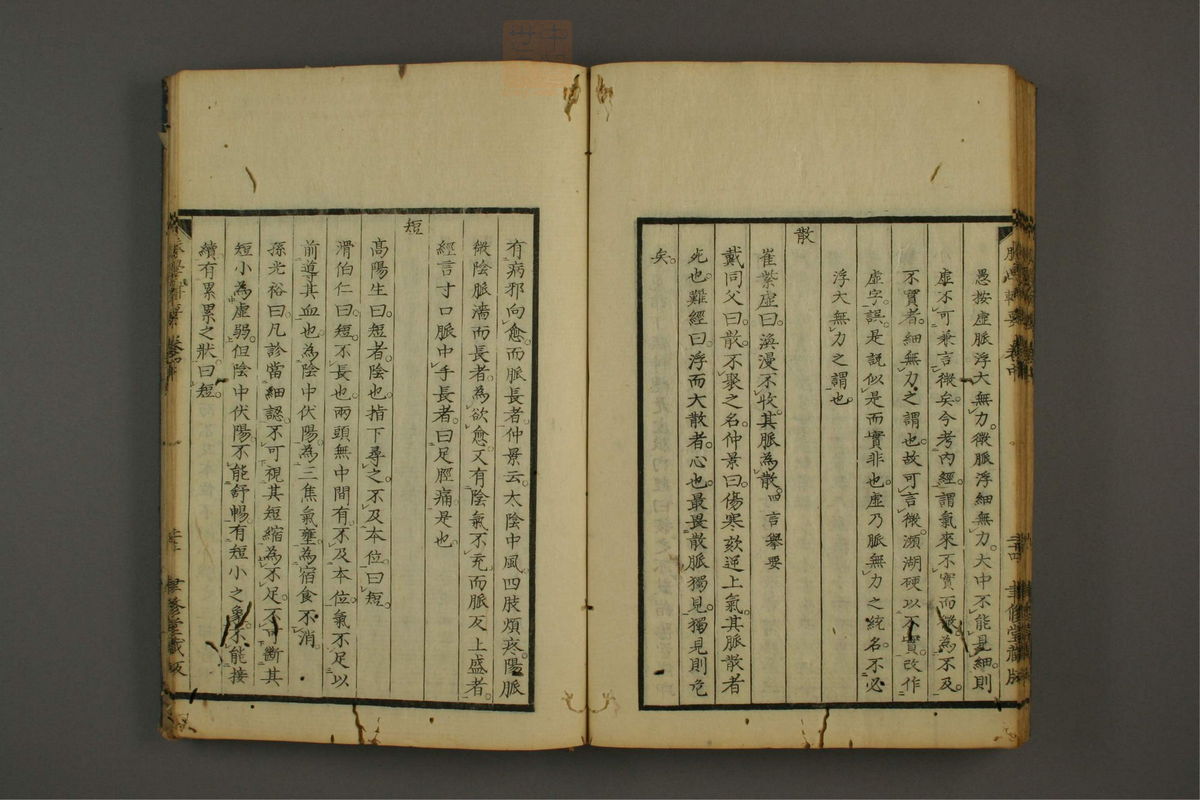 愚按虚脈浮大無力。微脈浮細無力。大中不能見細。則
虚不可兼言微矣。今考内經。謂氣來不實而微。為不及。
不實者。細無力之謂也。故可言微。瀕湖硬以不實。改作
虚字。誤。是説似是而實非也。虚乃脈無力之統名。不必
浮大無力之謂也
散
崔紫虚曰。渙漫不收。其脈為散。四言舉要
戴同父曰。散。不聚之名。仲景曰。傷寒欬逆上氣。其脈散者
死也。難經曰。浮而大散者。心也。最畏散脈獨見。獨見則危
矣。
有病邪向愈。而脈長者。仲景云。太陰中風。四肢煩疼。陽脈
微陰脈濇而長者。為欲愈。又有陰氣不充。而脈反上盛者。
經言寸口脈中手長者。曰足脛痛是也
短
高陽生曰。短者。陰也。指下尋之。不及本位。曰短。
滑伯仁曰。短。不長也。兩頭無中間有。不及本位。氣不足以
前導其血也。為陰中伏陽。為三焦氣壅。為宿食不消。
孫光裕曰。凡診當細認。不可視其短縮為不足。不可斷其
短小為虚弱。但陰中伏陽。不能舒暢。有短小之象。不能接
續。有累累之狀。曰短。
脈學輯要 卷中
聿修堂藏版